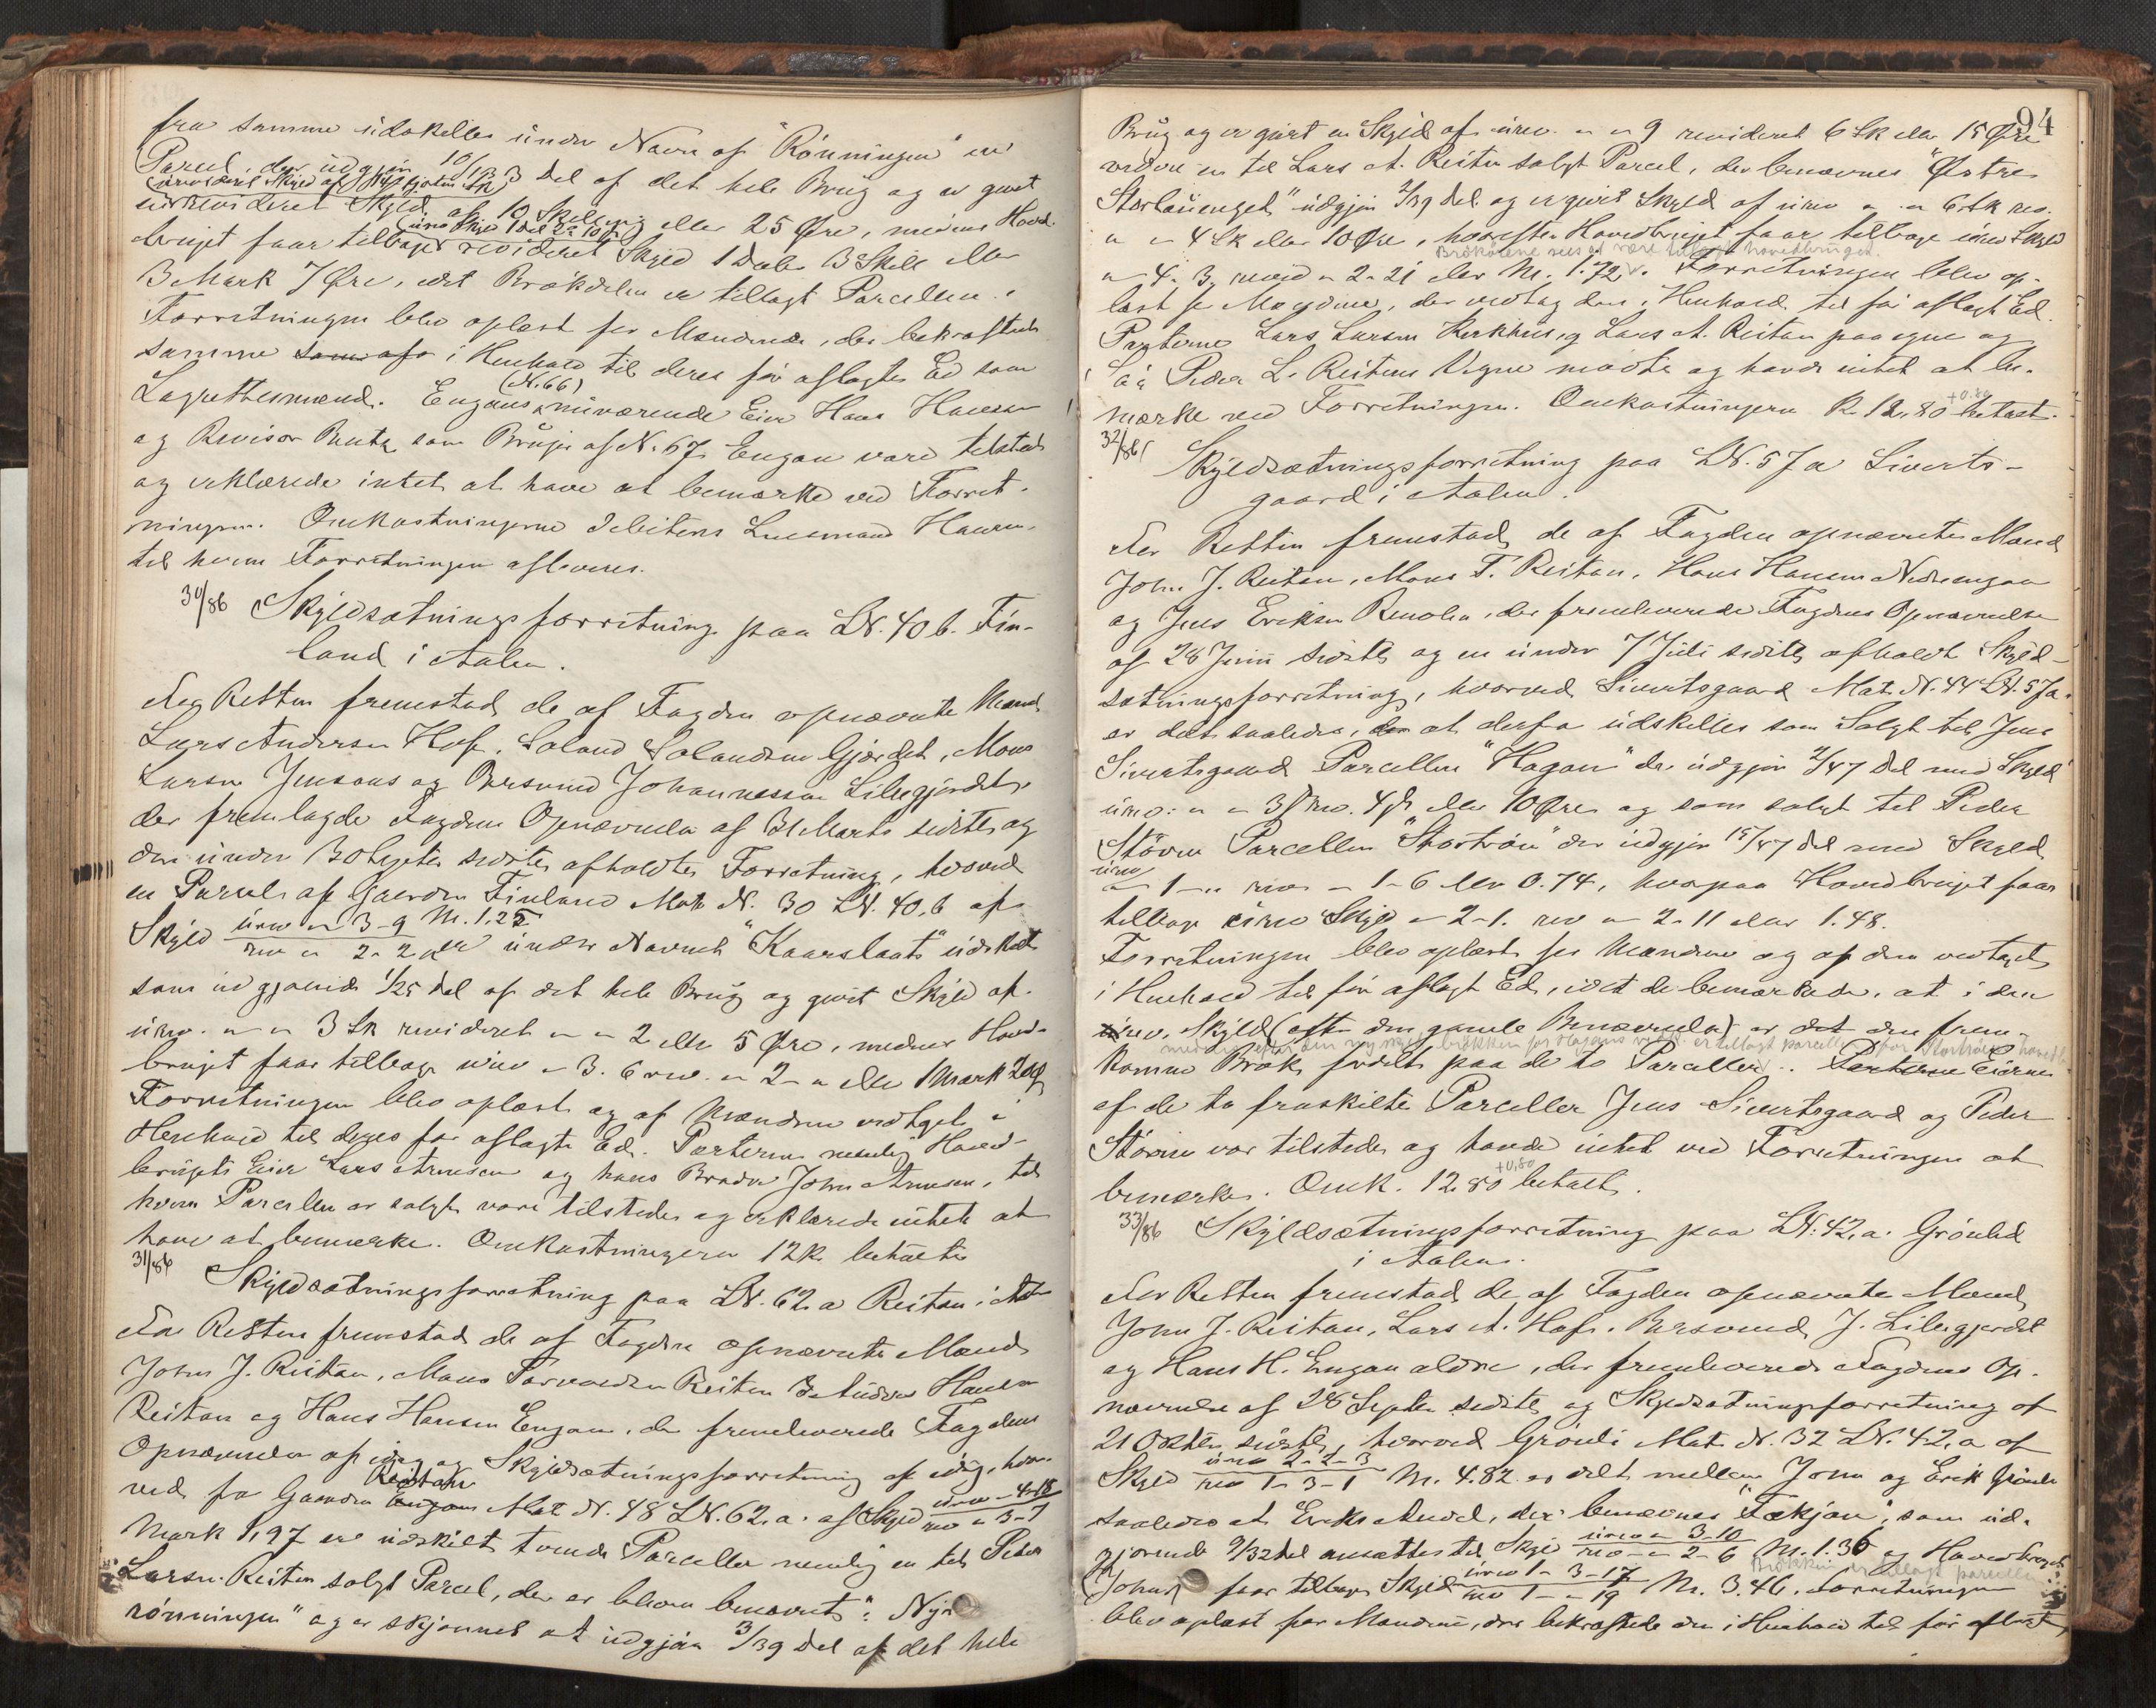 fra samme udskilles under Navn af "Rönningen" en
Parcel, der udgjör 10/133 Del af det hele Brug og er givet
(urevideret Skyld af
urevideret Skyld af 10 Skilling eller 25 Øre, medens Hoved-
bruget faar tilbage revideret Skyld 1 Daler 3 Skill eller
3 Mark 7 Øre, idet Brökdelen er tillagt Parcellen.
Forretningen blev oplæst for Mændene, der bekræftede
samme i Henhold til deres för aflagte Ed som
Lagrettesmænd. Engans (N. 66) nuværende Eier Hans Hansen
og Revisor som Bruger af N. 67 Engan vare tilstede
og erklærede intet at have at bemærke ved Forret-
ningen. Omkostningerne debiteres Lensmand Hansen
til hvem Forretningen afleveres.
30/86 Skyldsætningsforretning paa LN. 40 b. Fin-
land i Aalen.
For Retten fremstod de af Fogden opnævnte Mænd
Lars Andersen Hof, Soland Solandsen Gjærdet, Mons
Larsen Jensaas og Bersvend Johannessen Lillegjærdet,
der fremlagde Fogdens Opnævnelse af 31 Marts sidste og
den under 30 sidste afholdte Forretning, hvorved
en Parcel af Gaarden Finland Mat. N. 30 LN. 40,b af
Skyld urev " 3-9 M. 1.25
rev " 2-2 er under Navnet "Kaarslaat" udskilt
som udgjørende 1/25 Del af det hele Brug og givet Skyld af
urev. " " 3 Sk revideret " " 2 eller 5 Øre, medens Hoved-
bruget faar tilbage urev " 3. 6 rev. " 2 - " eller 1 Mark 20 Øre
Forretningen blev oplæst og af Mændene vedtaget i
Henhold til deres før aflagte Ed. Parterne nemlig Hoved-
brugets Eier Lars Arnesen og hans Broder John Arnesen, til
hvem Parcellen er solgt vare tilstede og erklærede intet at
have at bemærke. Omkostningerne 12 Kr. betalte
31/86 Skyldsætningsforretning paa LN. 62 a Reitan i Aalen
For Retten fremstod de af Fogden opnævnte Mænd
John J. Reitan, Mons Reitan Anders Hansen
Reitan og Hans Hansen Engan, der fremleverede Fogdens
Opnævnelse af idag og Skyldsætningsforretning af idag, hvor-
ved fra Gaarden Reitan Mat N. 48 LN. 62. a. af Skyld urev - 4-18
rev " 3-7
Mark 1,97 er udskilt tvende Parceller nemlig en til Peder
Larsen Reitan solgt Parcel, der er bleven benævnt: "Ny-
rönningen" og er skjønnet at udgjöre 3/39 Del af det hele
94
Brug og er givet en Skyld af urev. " " 9 revideret 6 Sk eller 15 Øre
og en til Lars A. Reitan solgt Parcel, der benævnes "Østre
Storlauenget" udgjör 2/39 Del og er givet Skyld af urev " " 6 Sk rev.
" " 4 Sk eller 10 Øre, hvorefter Hovedbruget faar tilbage urev Skyld
Brökdelene sees at være tillagt hovedbruget.
" 4. 3, revid " 2 - 21 eller M. 1.72. Forretningen blev op-
læst for Mændene, der vedtog den i Henhold til før aflagt Ed.
Parterne Lars Larsen Kirkhus, og Lars A. Reitan paa egne og
paa Peder L. Reitans Vegne mödte og havde intet at be-
mærke ved Forretningen. Omkostningerne K. 12,80 +0.80 betalt.
32/86 Skyldsætningsforretning paa LN. 57 a Siverts-
gaard i Aalen.
For Retten fremstod de af Fogden opnævnte Mænd
John J. Reitan, Mons T. Reitan, Hans Hansen Nedreengan
og Jens Eriksen Renolen, der fremleverede Fogdens Opnævnelse
af 28 Juni sidste og en under 7 Juli sidste afholdt Skyld-
sætningsforretning, hvorved Sivertsgaard Mat. N. 44 LN. 57 a.
er delt saaledes, at derfra udskilles som Solgt til Jens
Sivertsgaard Parcellen "Hagan" der udgjör 2/47 Del med Skyld
urev: " " 3 ß rev. 4 ß eller 10 Øre og som solgt til Peder
Stören Parcellen "Stortröen" der udgjör 15/47 Del med Skyld
urev
" 1 - " rev - 1-6 eller 0.74, hvorpaa Hovedbruget faar
tilbage urev Skyld " 2-1. rev " 2-11 eller 1.48.
Forretningen blev oplæst for Mændene og af dem vedtaget
i Henhold til før aflagt Ed, idet de bemærkede, at i den
urev. Skyld (efter den gamle Benævnelse) er den frem-
medens efter den ny skyld brökken for Hagans vedk. er tillagt parcellen, for Stortröens hovedb.
komne Brök fordelt paa de to Parceller. Eierne
af de to fraskilte Parceller Jens Sivertsgaard og Peder
Stören var tilstede og havde intet ved Forretningen at
bemærke. Omk. 12.80 +0,80 betalt.
33/86 Skyldsætningsforretning paa LN. 42, a. Gröulid
i Aalen.
For Retten fremstod de af Fogden opnævnte Mænd
John J. Reitan, Lars A. Hof, Bersvend J. Lillegjerdet
og Hans H. Engan ældre, der fremleverede Fogdens Op-
nævnelse af 28 Septbr sidste og Skyldsætningsforretning af
21 Oktbr sidste, hvorved Grönli Mat. N. 32 LN. 42, a af
Skyld urev 2-2-3
rev 1-3-1 M. 4.82 er delt mellem John og Erik Grönli
saaledes at Eriks Andel, der benævnes "Tækjan", som ud-
gjørende 9/32 Del ansættes til Skyld urev " 3-10
rev " 2-6 M. 1.36 og Hovedbruget
Brökken er tillagt parcellen
(Johns) faar tilbage Skyld urev 1-3-17
rev 1 - " 19 M. 3.46. Forretningen
blev oplæst for Mændene, der bekræftede den i Henhold til før aflagt